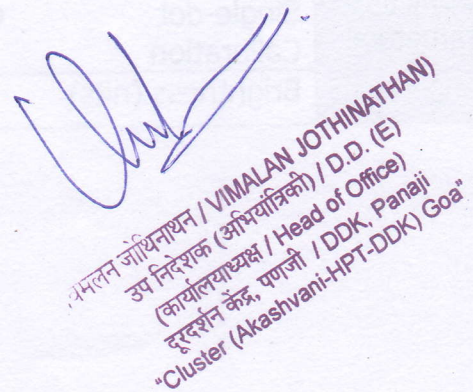 विमलन जोथिनाथन / VIMALAN JOTHINATHAN)
उप निदेशक (अभियांत्रिकी) / D.D. (E)
(कार्यालयाध्यक्ष / Head of Office)
दूरदर्शन केंद्र, पणजी / DDK, Panaji
"Cluster (Akashvani-HPT-DDK) Goa"